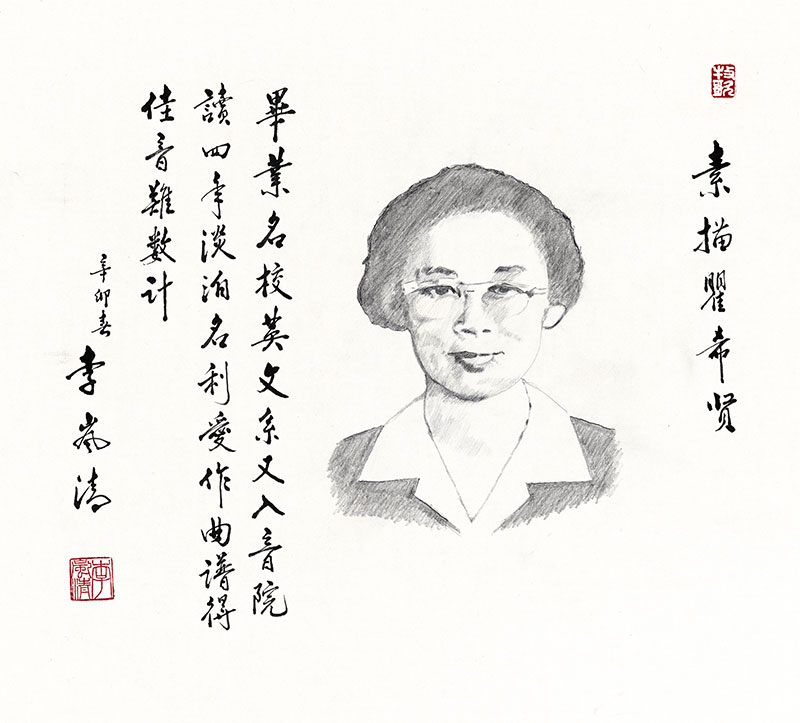 素描瞿希贤
畢業名校英文系又入音院
讀四年淡泊名利愛作曲譜得
佳音難數計
辛卯春
李嵐清